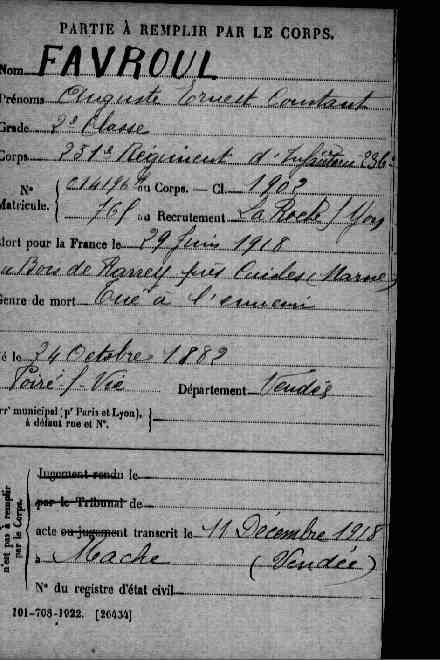 PARTIE À REMPLIR PAR LE CORPS.
Nom FAVROUL
Prénoms Auguste Ernest Constant
Grade 2e Classe
Corps 251e Régiment d'Infanterie 236e
N° 014196 au Corps. — Cl. 1902
Matricule. 765 au Recrutement La Roche s/ Yon
Mort pour la France le 29 Juin 1918
au Bois de près (Marne)
Genre de mort Tué à l'ennemi
né le 24 Octobre 1882
Poiré s/ Vie Département Vendée
arrt municipal (pr Paris et Lyon),
à défaut rue et N°.
n'est pas à remplir
par le Corps.
Jugement rendu le
par le Tribunal de
acte ou jugement transcrit le 11 Décembre 1918
à Mache (Vendée)
N° du registre d'état civil
101-708-1922. [26434]